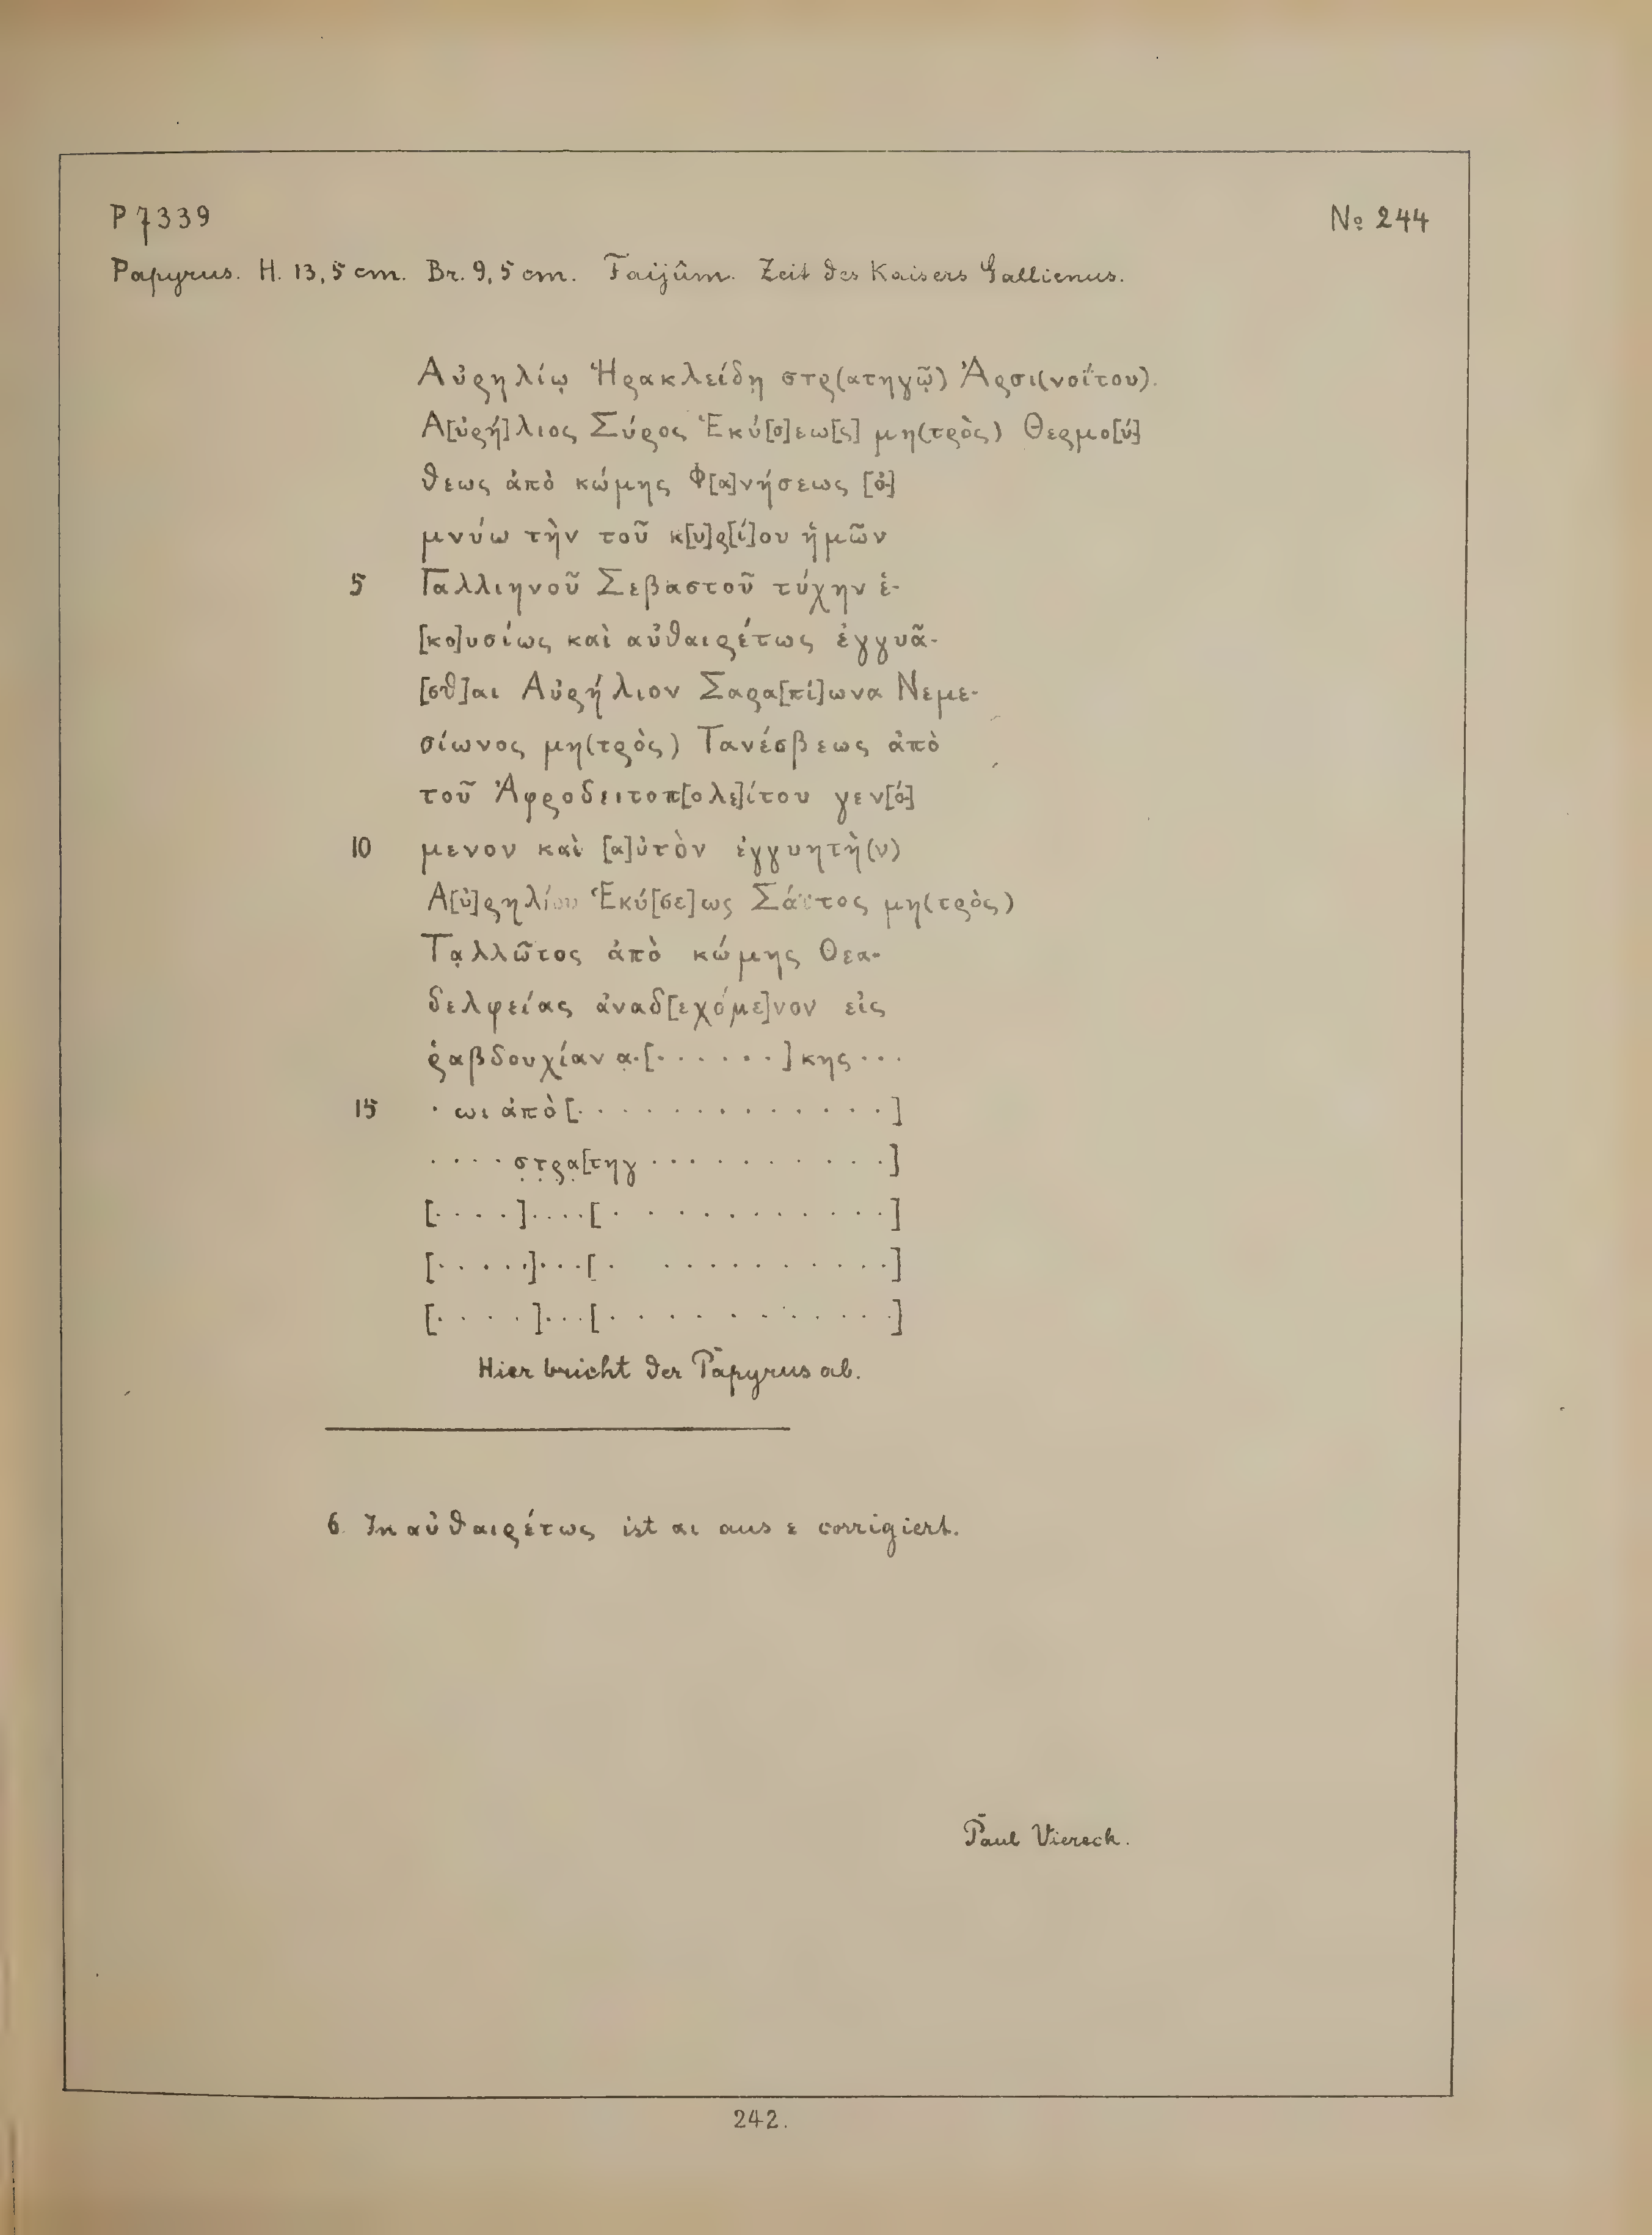 P 7339
No 244
Papyrus. H. 13,5 cm. Br. 9,5 cm. Faijûm. Zeit des Kaisers Gallienus.
Αὐρηλίῳ Ἡρακλείδῃ στρ(ατηγῷ) Ἀρσι(νοΐτου).
Α[ὐρή]λιος Σύρος Ἑκύ[σ]εω[ς] μη(τρὸς) Θερμο[ύ-]
θεως ἀπὸ κώμης Φ[α]νήσεως [ὀ-]
μνύω τὴν τοῦ κ[υ]ρ[ί]ου ἡμῶν
5 Γαλλιηνοῦ Σεβαστοῦ τύχην ἑ-
[κο]υσίως καὶ αὐθαιρέτως ἐγγυᾶ-
[σθ]αι Αὐρήλιον Σαρα[πί]ωνα Νεμε-
σίωνος μη(τρὸς) Τανέσβεως ἀπὸ
τοῦ Ἀφροδειτοπ[ολε]ίτου γεν[ό-]
10 μενον καὶ [α]ὐτὸν ἐγγυητὴ(ν)
Α[ὐ]ρηλίου Ἑκύ[σε]ως Σάϊτος μη(τρὸς)
Τα̣λλῶτος ἀπὸ κώμης Θεα-
δελφείας ἀναδ[εχόμε]νον εἰς
ῥαβδουχίαν α̣.[. . . . . .]κης . . .
15 . ωι ἀπὸ [. . . . . . . . . . . . .]
. . . . σ̣τ̣ρ̣α̣[τηγ . . . . . . . . . .]
[. . . . .] . . . . [. . . . . . . . . . . .]
[. . . . . .] . . . [. . . . . . . . . . .]
[. . . . .] . . . [. . . . . . . . . . .]
Hier bricht der Papyrus ab.
6. In αὐθαιρέτως ist αι aus ε corrigiert.
Paul Viereck.
242.